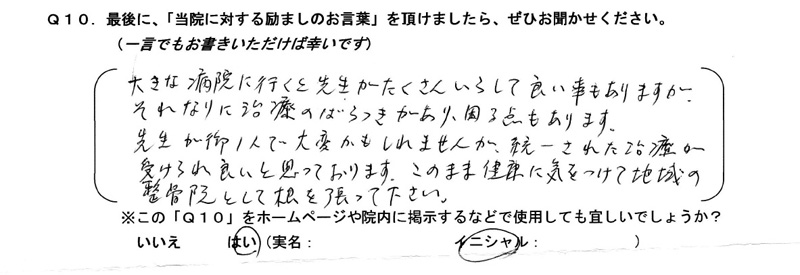 Q10．最後に、「当院に対する励ましのお言葉」を頂けましたら、ぜひお聞かせください。
（一言でもお書きいただけば幸いです）
大きな病院に行くと先生がたくさんいらして良い事もありますが、
それなりに治療のばらつきがあり、困る点もあります。
先生が御1人で大変かもしれませんが、統一された治療が
受けられ良いと思っております。このまま健康に気をつけて地域の
整骨院として根を張って下さい。
※この「Q10」をホームページや院内に掲示するなどで使用しても宜しいでしょうか？
いいえ　はい（実名：　イニシャル：　）